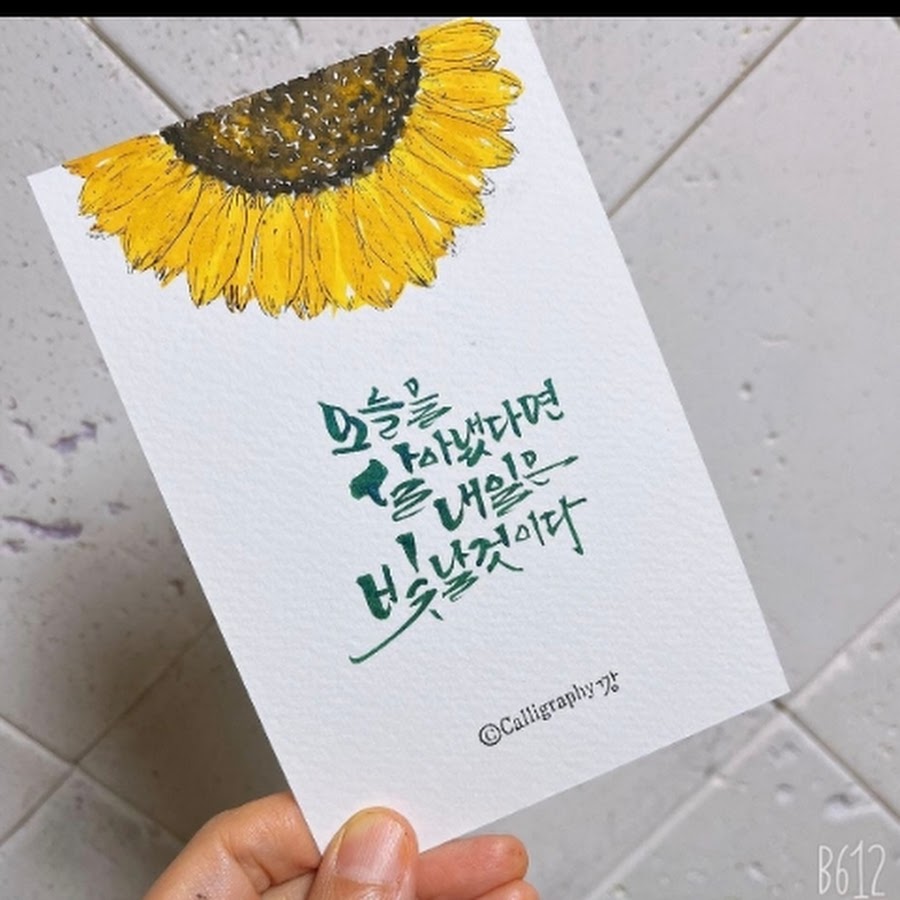 오늘을
살아냈다면
내일은
빛날것이다
©Calligraphy깡
B612